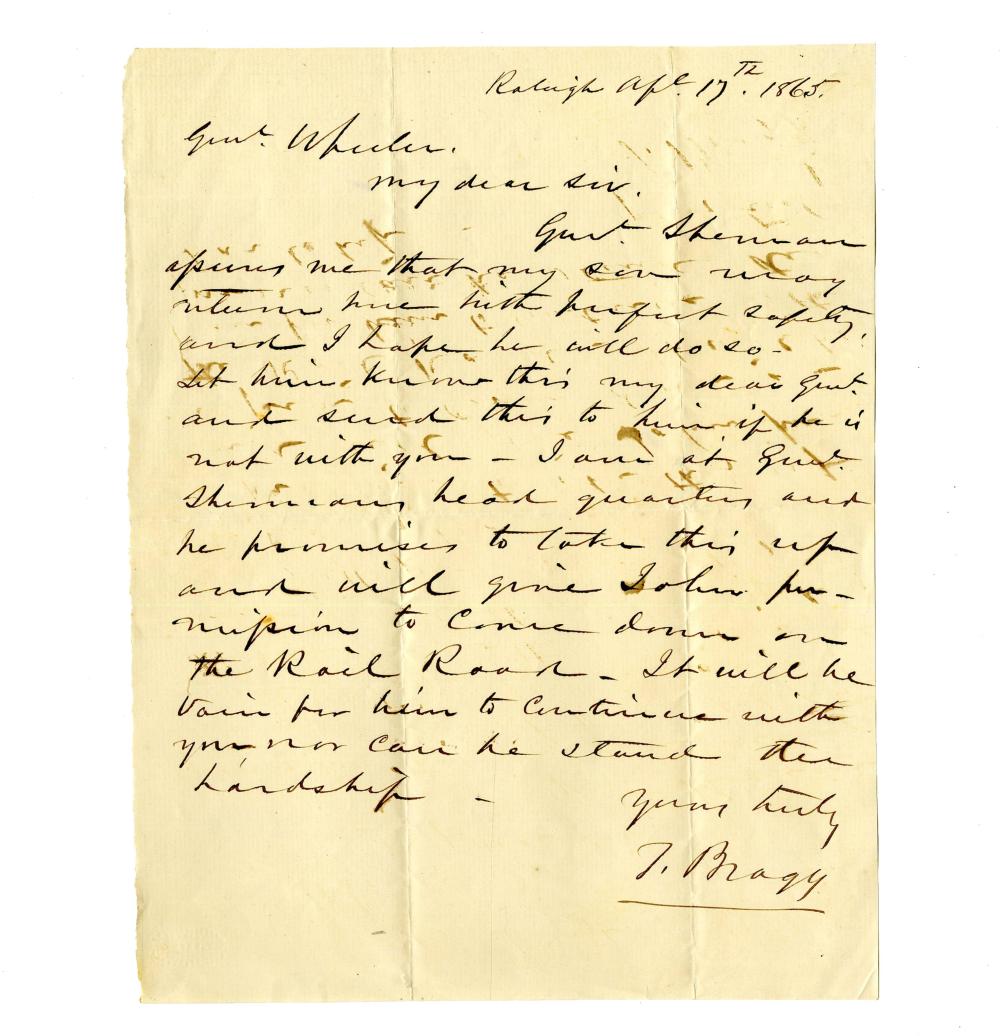 Raleigh Apl. 17th. 1865.
Genl. Wheeler.
My dear Sir.
Genl. Sherman
assures me that my son may
return here with perfect safety,
and I hope he will do so -
Let him know this my dear Genl.
and send this to him if he is
not with you - I am at Genl.
Shermans head quarters and
he promises to take this up
and will give John per-
mission to come down on
the Rail Road - It will be
vain for him to continue with
you nor can he stand the
hardship -
Yours truly
T. Bragg